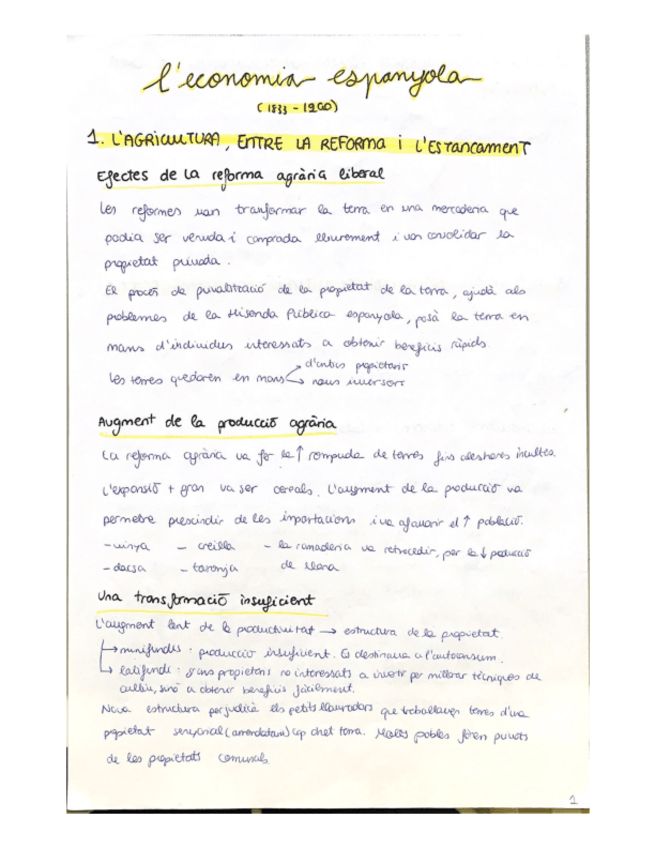 l'economia espanyola
(1833 - 1900)
1. L'AGRICULTURA, ENTRE LA REFORMA i L'ESTANCAMENT
Efectes de la reforma agrària liberal
Les reformes van tranformar la terra en una mercaderia que
podia ser venuda i comprada lliurement i van consolidar la
propietat privada.
El procés de privalització de la propietat de la terra, ajudà als
problemes de la Hisenda Pública espanyola, posà la terra en
mans d'individus interessats a obtenir beneficis ràpids.
Les terres quedaren en mans d'antics propietaris
nous inversors
Augment de la producció agrària
La reforma agrària va fer la ↑ rompuda de terres fins aleshores incultes.
L'expansió + gran va ser cereals. L'augment de la producció va
permetre prescindir de les importacions i va afavorir el ↑ població.
- vinya - creïlla - la ramaderia va retrocedir, per la ↓ producció
- dacsa - taronja de llana
Una transformació insuficient
L'augment lent de la productivitat → estructura de la propietat.
→ minifundis: producció insuficient. Es destinava a l'autoconsum.
→ latifundi: grans propietaris no interessats a invertir per millorar tècniques de
cultiu, sinó a obtenir beneficis fàcilment.
Nova estructura perjudicà els petits llauradors que treballaven terres d'una
propietat senyorial (arrendataris) cap dret terra. Molts pobles foren privats
de les propietats comunals.
1